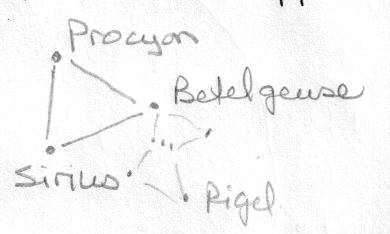 Procyon
Betelgeuse
Sirius
Rigel